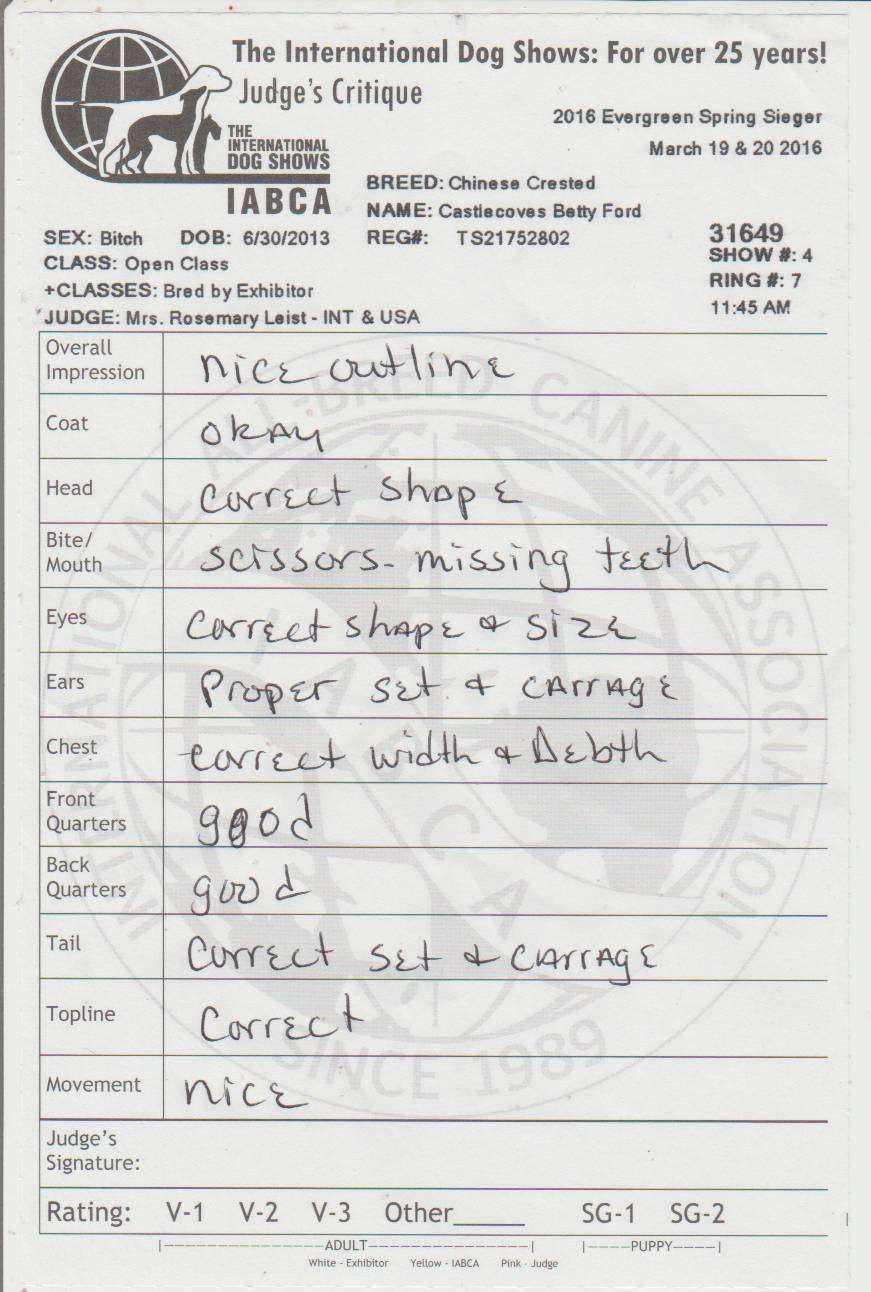 The International Dog Shows: For over 25 years!
Judge's Critique
2016 Evergreen Spring Sieger
March 19 & 20 2016
THE
INTERNATIONAL
DOG SHOWS
IABCA
BREED: Chinese Crested
NAME: Castlecoves Betty Ford
SEX: Bitch DOB: 6/30/2013 REG#: TS21752802
31649
CLASS: Open Class
SHOW #: 4
+CLASSES: Bred by Exhibitor
RING #: 7
JUDGE: Mrs. Rosemary Leist - INT & USA
11:45 AM
Overall
Impression
nice outline
Coat
okay
Head
correct shape
Bite/
Mouth
scissors - missing teeth
Eyes
correct shape & size
Ears
Proper set & carrage
Chest
correct width & Debth
Front
Quarters
good
Back
Quarters
good
Tail
Correct set & carrage
Topline
Correct
Movement
nice
Judge's
Signature:
Rating: V-1 V-2 V-3 Other_____ SG-1 SG-2
|----------------ADULT----------------| |----PUPPY----|
White - Exhibitor Yellow - IABCA Pink - Judge
INTERNATIONAL ALL-BREED CANINE ASSOCIATION
IABCA
SINCE 1989